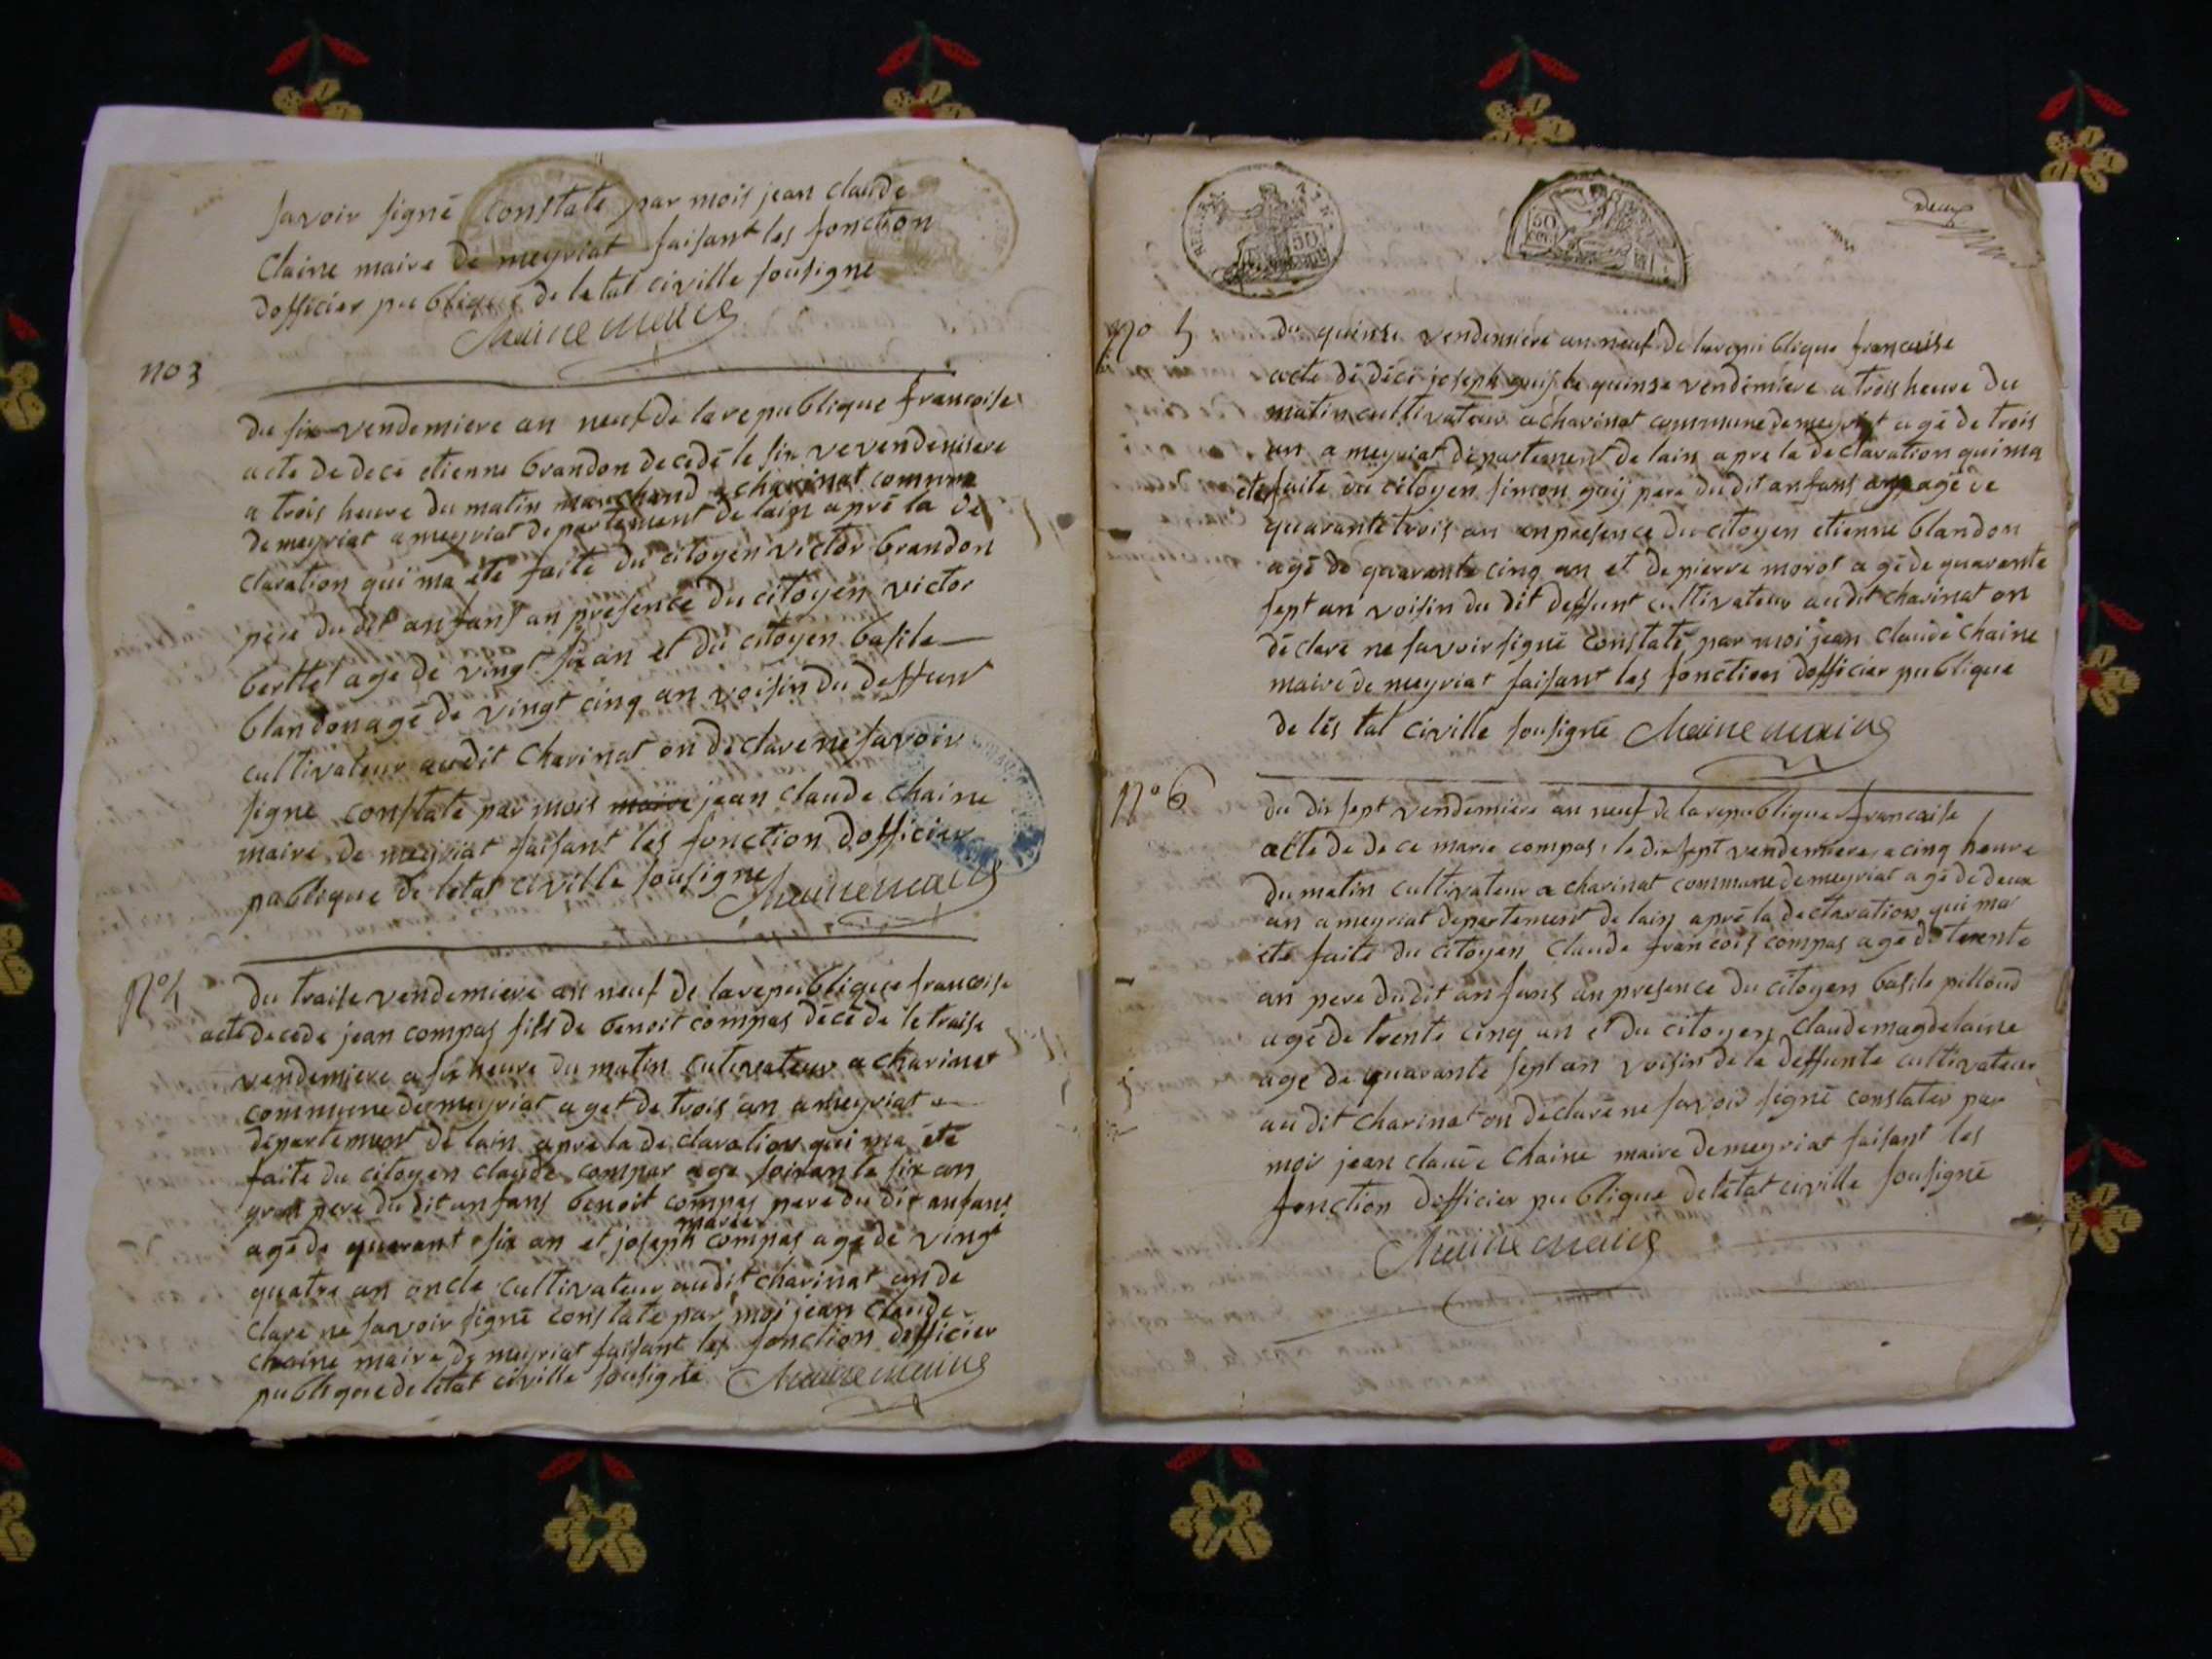 savoir signé constate par mois jean claude
Chaine maire de meyriat faisant les fonction
dofficier publique de letat civille sousigne
Chaine maire
no 3
du six vendemiere an neuf de la republique francoise
acte de decé etienne brandon decedé le six vevendemiere
a trois heure du matin marchand a charinat commune
de meyriat a meyriat departement de lain apré la de
claration qui ma été faite du citoyen victor brandon
pere du dit anfans an presence du citoyen victor
berttet agé de vingt six an et du citoyen basile
blandon agé de vingt cinq an voisin du deffunt
cultivateur audit charinat on declare ne savoir
signe constate par mois maire jean claude chaine
maire de meyriat faisant les fonction dofficier
publique de letat civille sousigne Chaine maire
No 4
du traise vendemiere an neuf de la republique francoise
acte decede jean compas fils de benoit compas décéde le traise
vendemiere a six heure du matin cutivateur a charinat
commune de meyriat aget de trois an a meyriat
departement de lain apré la declaration qui ma été
faite du citoyen claude compas age soixante six an
gran pere du dit anfans benoit compas pere du dit anfans
agé de quarant six an et joseph marie compas agé de vingt
quatre an oncle cultivateur audit charinat on de
claré ne savoir signé constate par moi jean claude
chaine maire de meyriat faisant les fonction dofficier
publique de letat civille sousigné Chaine maire
BO
50
50
deux
No 5
du quinse vendemiere an neuf de la republique francaise
acte de décé joseph guij le quinse vendémiere a trois heure du
matin cultivateur a charinat commune de meyriat agé de trois
an a meyriat departement de lain apre la declaration qui ma
été faite du citoyen simon guij pere du dit anfans agé de
quarante trois an an présence du citoyen etienne blandon
agé de quarante cinq an et de pierre morot agé de quarante
sept an voisin du dit deffunt cultivateur audit charinat on
déclaré ne savoir signé constaté par moi jean claude chaine
maire de meyriat faisant les fonction dofficier publique
de lés tat civille sousigné Chaine maire
No 6
du dix sept vendémiere an neuf de la republique francaise
acte de de ce marie compas le dix sept vendemiere a cinq heure
du matin cultivateur a charinat commune de meyriat agé de deux
an a meyriat departement de lain apré la declaration qui ma
été faite du citoyen claude francois compas agé de trente
an pere du dit anfans an presence du citoyen basile pilloud
agé de trente cinq an et du citoyen claude magdelaine
age de quarante sept an voisin de la deffunte cultivateur
au dit charinat on déclaré ne savoir signé constater par
moi jean claude chaine maire de meyriat faisant les
fonction dofficier publique de létat civille sousigné
Chaine maire